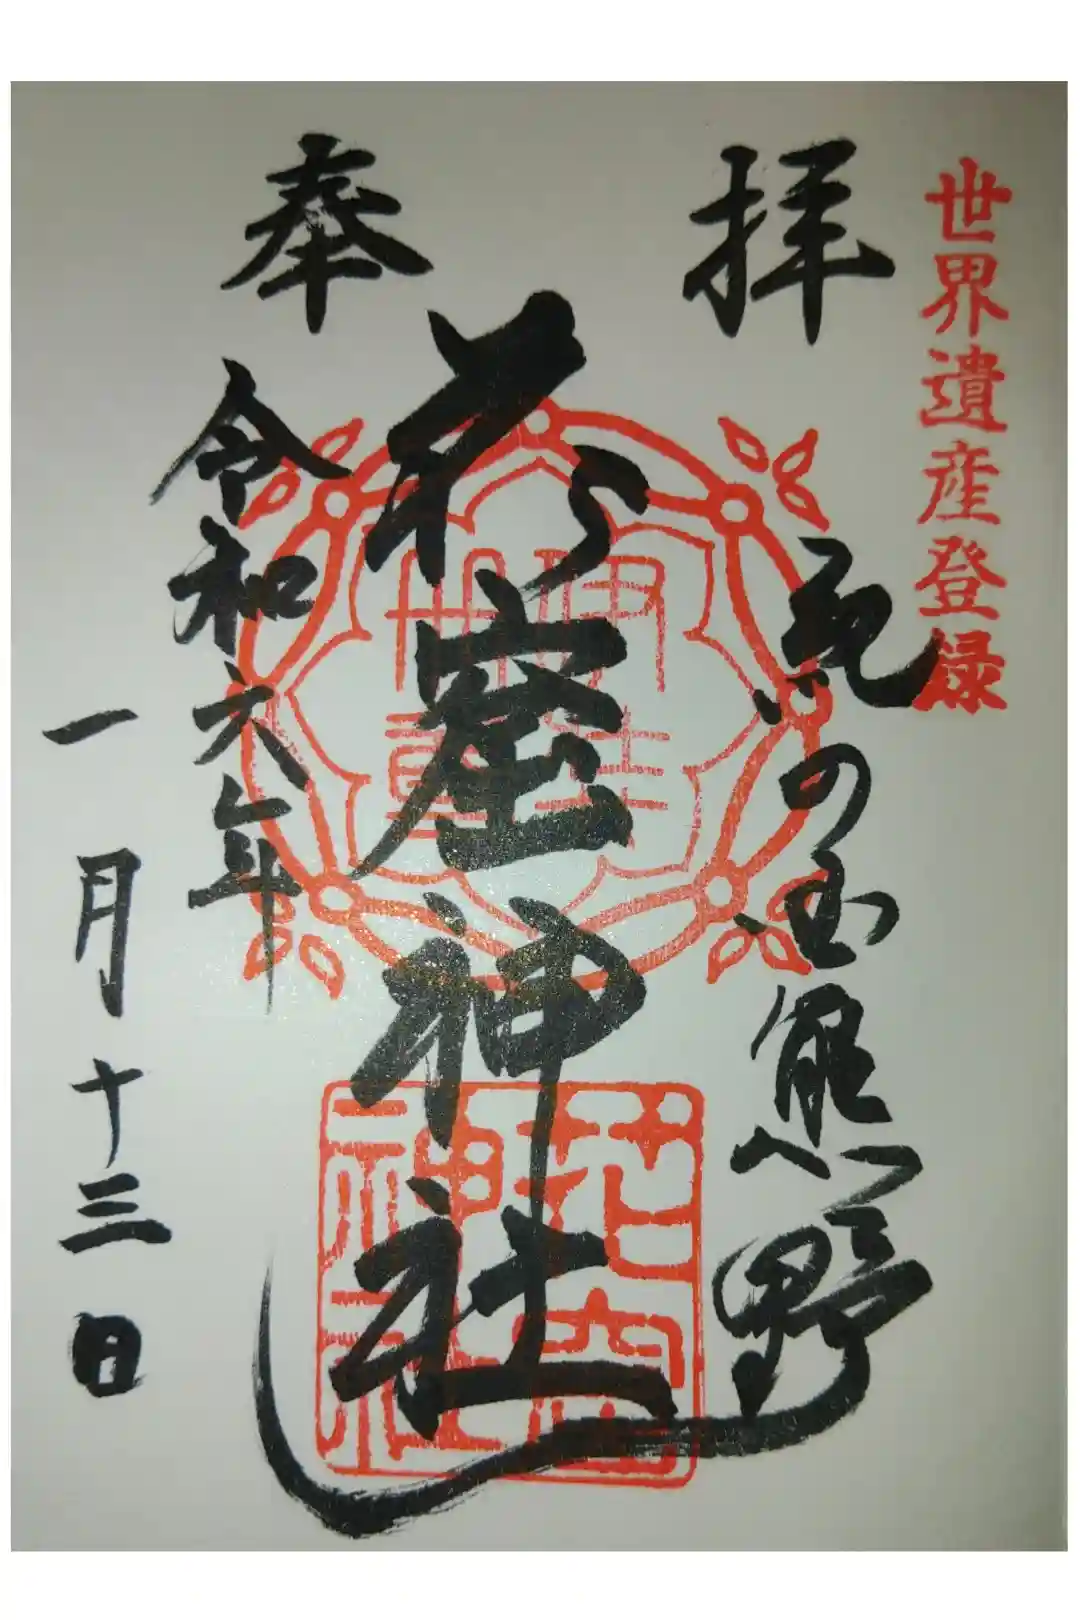 世界遺産登録
奉拝
紀の国熊野
花窟神社
令和六年
一月十三日
花窟神社